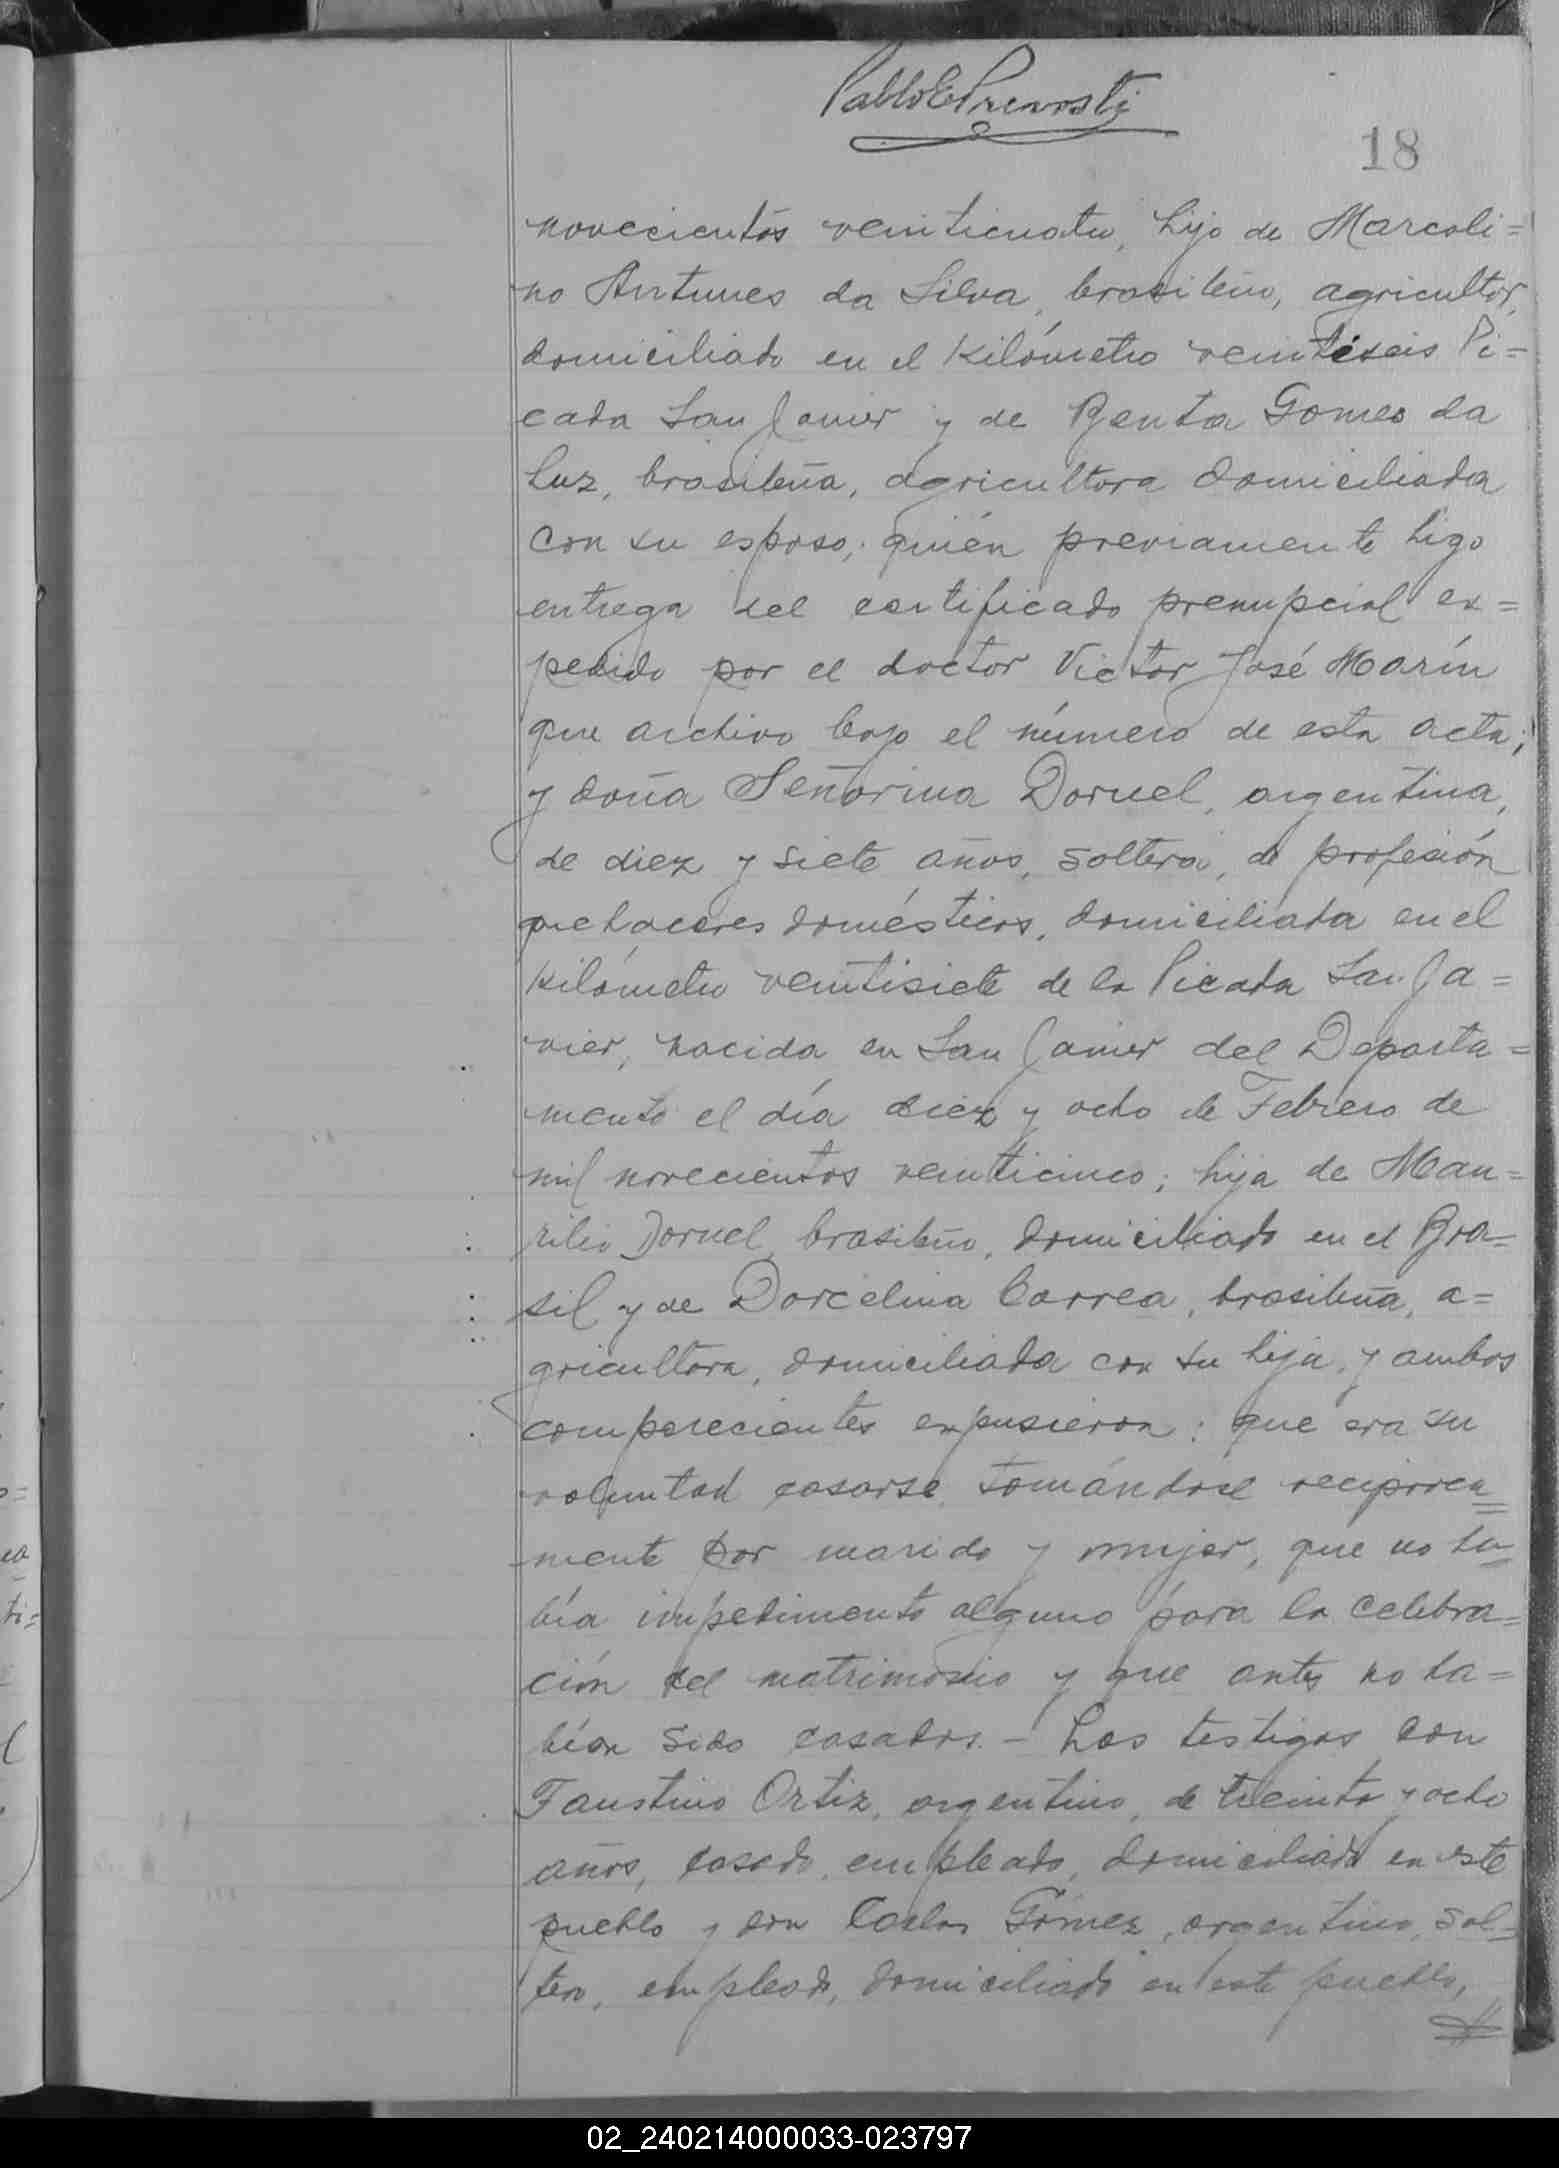 Pablo E Prevosti
18
novecientos veinticuatro, hijo de Marcoli=
no Antunes da Silva, brasileño, agricultor,
domiciliado en el Kilómetro veintiseis Pi=
cada San Javier y de Benta Gomes da
Luz, brasileña, agricultora domiciliada
con su esposo; quién previamente hizo
entrega del certificado prenupcial ex=
pedido por el doctor Victor José Marín
que archivo bajo el número de esta acta;
y doña Señorina Dornel, argentina,
de diez y siete años, soltera, de profesión
quehaceres domésticos, domiciliada en el
Kilómetro veintisiete de la Picada San Ja=
vier, nacida en San Javier del Departa=
mento el día diez y ocho de Febrero de
mil novecientos veinticinco; hija de Mau=
rilio Dornel, brasileño, domiciliado en el Bra=
sil y de Dorcelina Correa, brasileña, a=
gricultora, domiciliada con su hija, y ambos
comparecientes expusieron: que era su
voluntad casarse tomándose reciproca=
mente por marido y mujer, que no ha=
bía impedimento alguno para la celebra=
ción del matrimonio y que antes no ha=
bían sido casados.- Los testigos don
Faustino Ortiz, argentino, de treinta y ocho
años, casado, empleado, domiciliado en este
pueblo y don Carlos Gómez, argentino, sol=
tero, empleado, domiciliado en este pueblo,
02_240214000033-023797